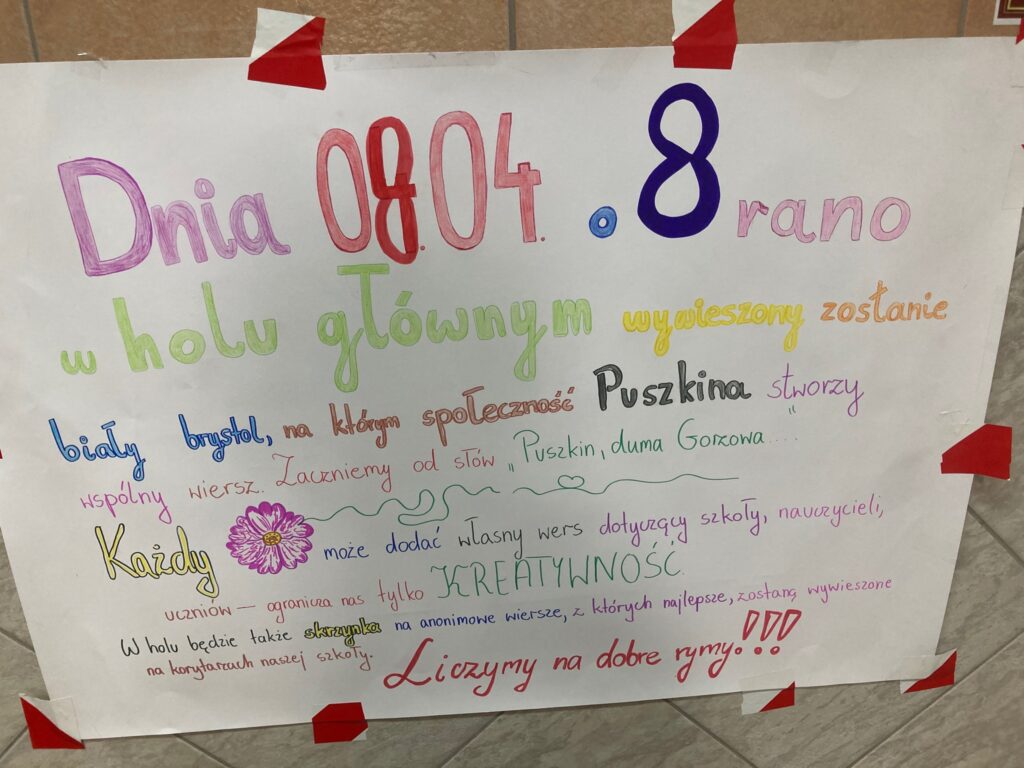 Dnia 08.04. o 8 rano
w holu głównym wywieszony zostanie
biały brystol, na którym społeczność Puszkina stworzy
wspólny wiersz. Zaczniemy od słów „Puszkin, duma Gorzowa....."
Każdy może dodać własny wers dotyczący szkoły, nauczycieli,
uczniów — ogranicza nas tylko KREATYWNOŚĆ.
W holu będzie także skrzynka na anonimowe wiersze, z których najlepsze, zostaną wywieszone
na korytarzach naszej szkoły. Liczymy na dobre rymy!!!